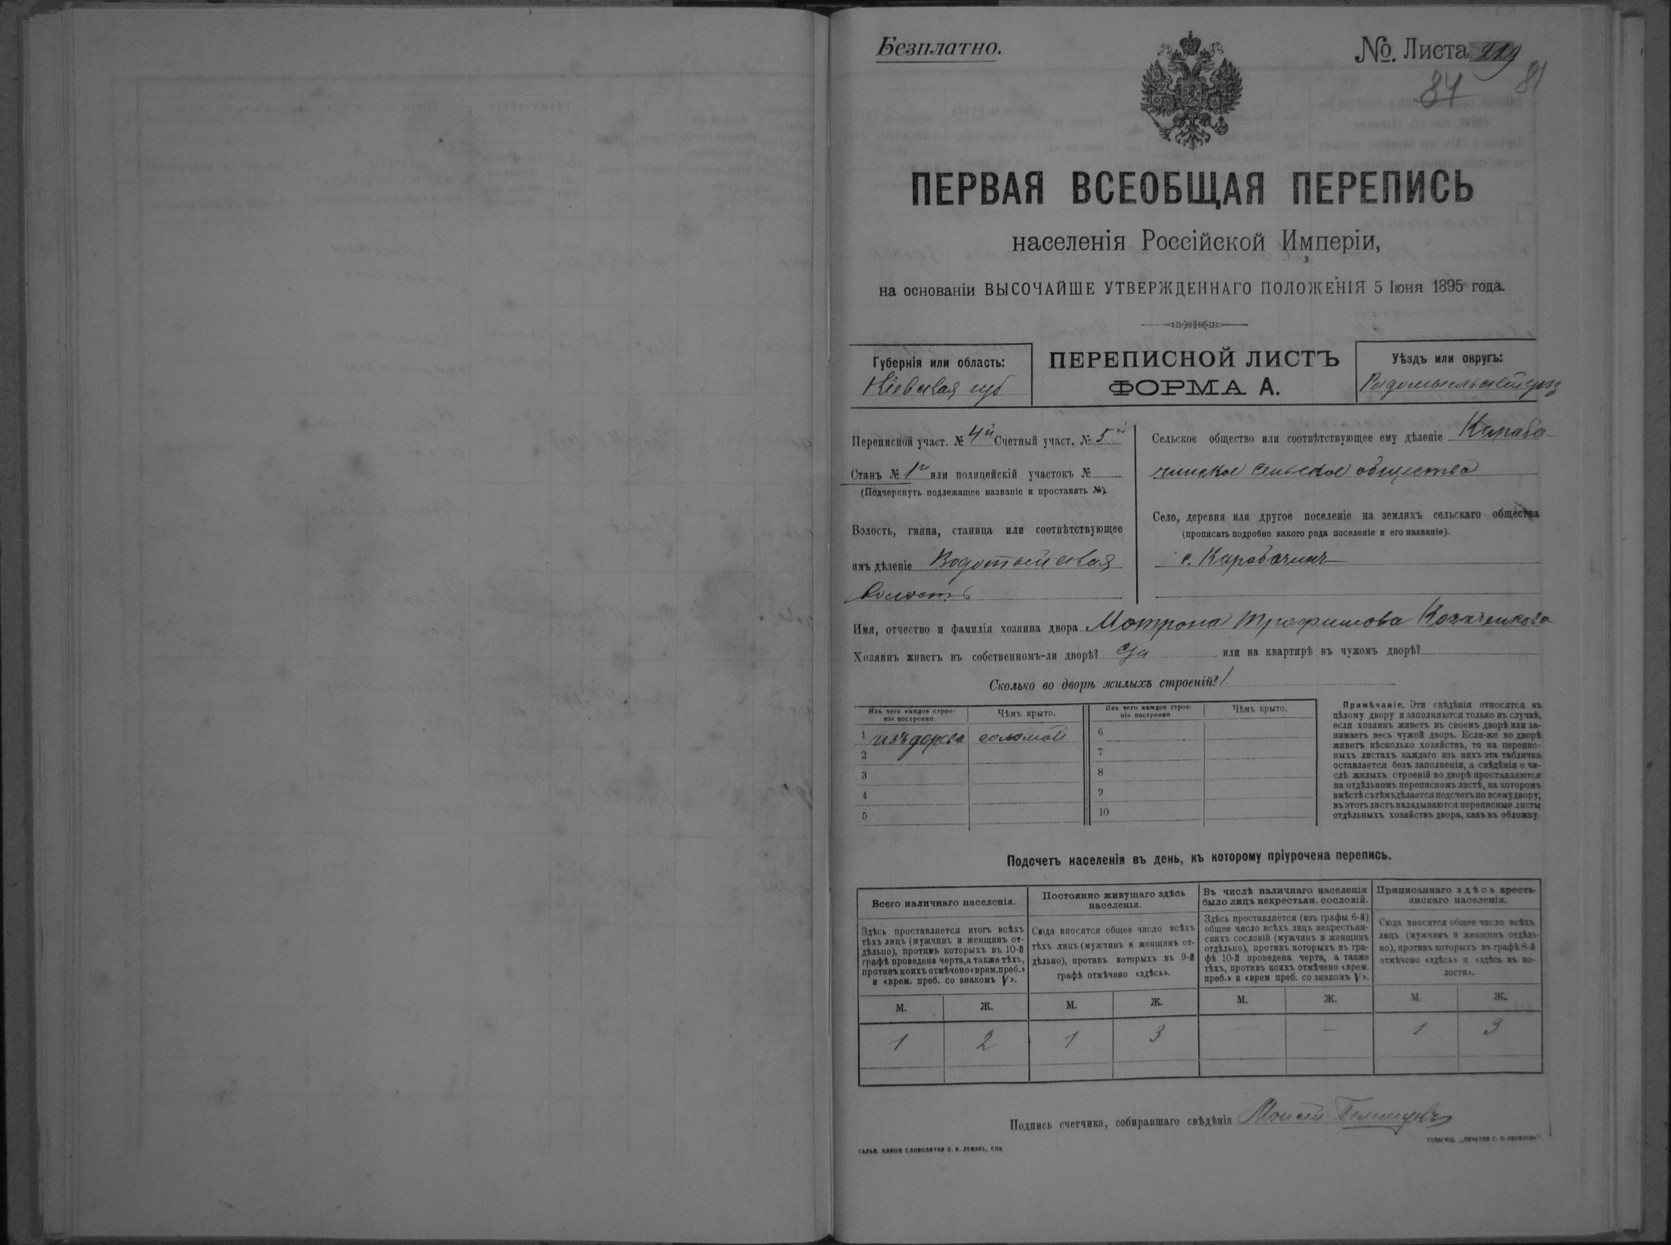 Безплатно.
№. Листа 229
84 81
ПЕРВАЯ ВСЕОБЩАЯ ПЕРЕПИСЬ
населенія Россійской Имперіи,
на основаніи ВЫСОЧАЙШЕ УТВЕРЖДЕННАГО ПОЛОЖЕНІЯ 5 Іюня 1895 года.
Губернія или область:
Кіевская губ
ПЕРЕПИСНОЙ ЛИСТЪ
ФОРМА А.
Уѣздъ или округъ:
Радомысльскій уѣзд
Переписной участ. № 4й Счетный участ. № 5й
Станъ № 1й или полицейскій участокъ №
(Подчеркнуть подлежащее названіе и проставить №).
Волость, гмина, станица или соотвѣтствующее
имъ дѣленіе Водотыйская
волость
Сельское общество или соотвѣтствующее ему дѣленіе Караба-
чинское сельское общество
Село, деревня или другое поселеніе на земляхъ сельскаго общества
(прописать подробно какого рода поселеніе и его названіе).
с. Карабачинъ
Имя, отчество и фамилія хозяина двора Мотрона Трофимова Козаченкова
Хозяинъ живетъ въ собственномъ-ли дворѣ? Да или на квартирѣ въ чужомъ дворѣ?
Сколько во дворѣ жилыхъ строеній? 1
Изъ чего каждое строе-
ніе построено.
Чѣмъ крыто.
Изъ чего каждое строе-
ніе построено.
Чѣмъ крыто.
1 изъ дерева соломой 6
2 7
3 8
4 9
5 10
Примѣчаніе. Эти свѣдѣнія относятся къ
цѣлому двору и заполняются только въ случаѣ,
если хозяинъ живетъ въ своемъ дворѣ или за-
нимаетъ весь чужой дворъ. Если-же во дворѣ
живетъ нѣсколько хозяйствъ, то на перепис-
ныхъ листахъ каждаго изъ нихъ эта табличка
оставляется безъ заполненія, а свѣдѣнія о чи-
слѣ жилыхъ строеній во дворѣ проставляются
на отдѣльномъ переписномъ листѣ, на которомъ
вмѣстѣ съ тѣмъ дѣлается подсчетъ по всему двору;
въ этотъ листъ вкладываются переписные листы
отдѣльныхъ хозяйствъ двора, какъ въ обложку.
Подсчетъ населенія въ день, къ которому пріурочена перепись.
Всего наличнаго населенія.
Здѣсь проставляется итогъ всѣхъ
тѣхъ лицъ (мужчинъ и женщинъ от-
дѣльно), противъ которыхъ въ 10-й
графѣ проведена черта, а также тѣхъ,
противъ коихъ отмѣчено «врем. преб.»
и «врем. преб. со знакомъ V».
Постоянно живущаго здѣсь
населенія.
Сюда вносятся общее число всѣхъ
тѣхъ лицъ (мужчинъ и женщинъ от-
дѣльно), противъ которыхъ въ 9-й
графѣ отмѣчено «здѣсь».
Въ числѣ наличнаго населенія
было лицъ некрестьян. сословій.
Здѣсь проставляется (изъ графы 6-й)
общее число всѣхъ лицъ некрестьян-
скихъ сословій (мужчинъ и женщинъ
отдѣльно), противъ которыхъ въ гра-
фѣ 10-й проведена черта, а также
тѣхъ, противъ коихъ отмѣчено «врем.
преб.» и «врем преб. со знакомъ V».
Приписаннаго здѣсь кресть-
янскаго населенія.
Сюда вносятся общее число всѣхъ
лицъ (мужчинъ и женщинъ отдѣль-
но), противъ которыхъ въ графѣ 8-й
отмѣчено «здѣсь» и «здѣсь въ во-
лости».
М. Ж. М. Ж. М. Ж. М. Ж.
1 2 1 3 — — 1 3
Подпись счетчика, собиравшаго свѣдѣнія Моисей
ГАЛЬВ. КЛИШЕ СЛОВОЛИТНИ О. И. ЛЕМАНЪ, СПБ.
ТОВАРИЩ. „ПЕЧАТНЯ С. П. ЯКОВЛЕВА"